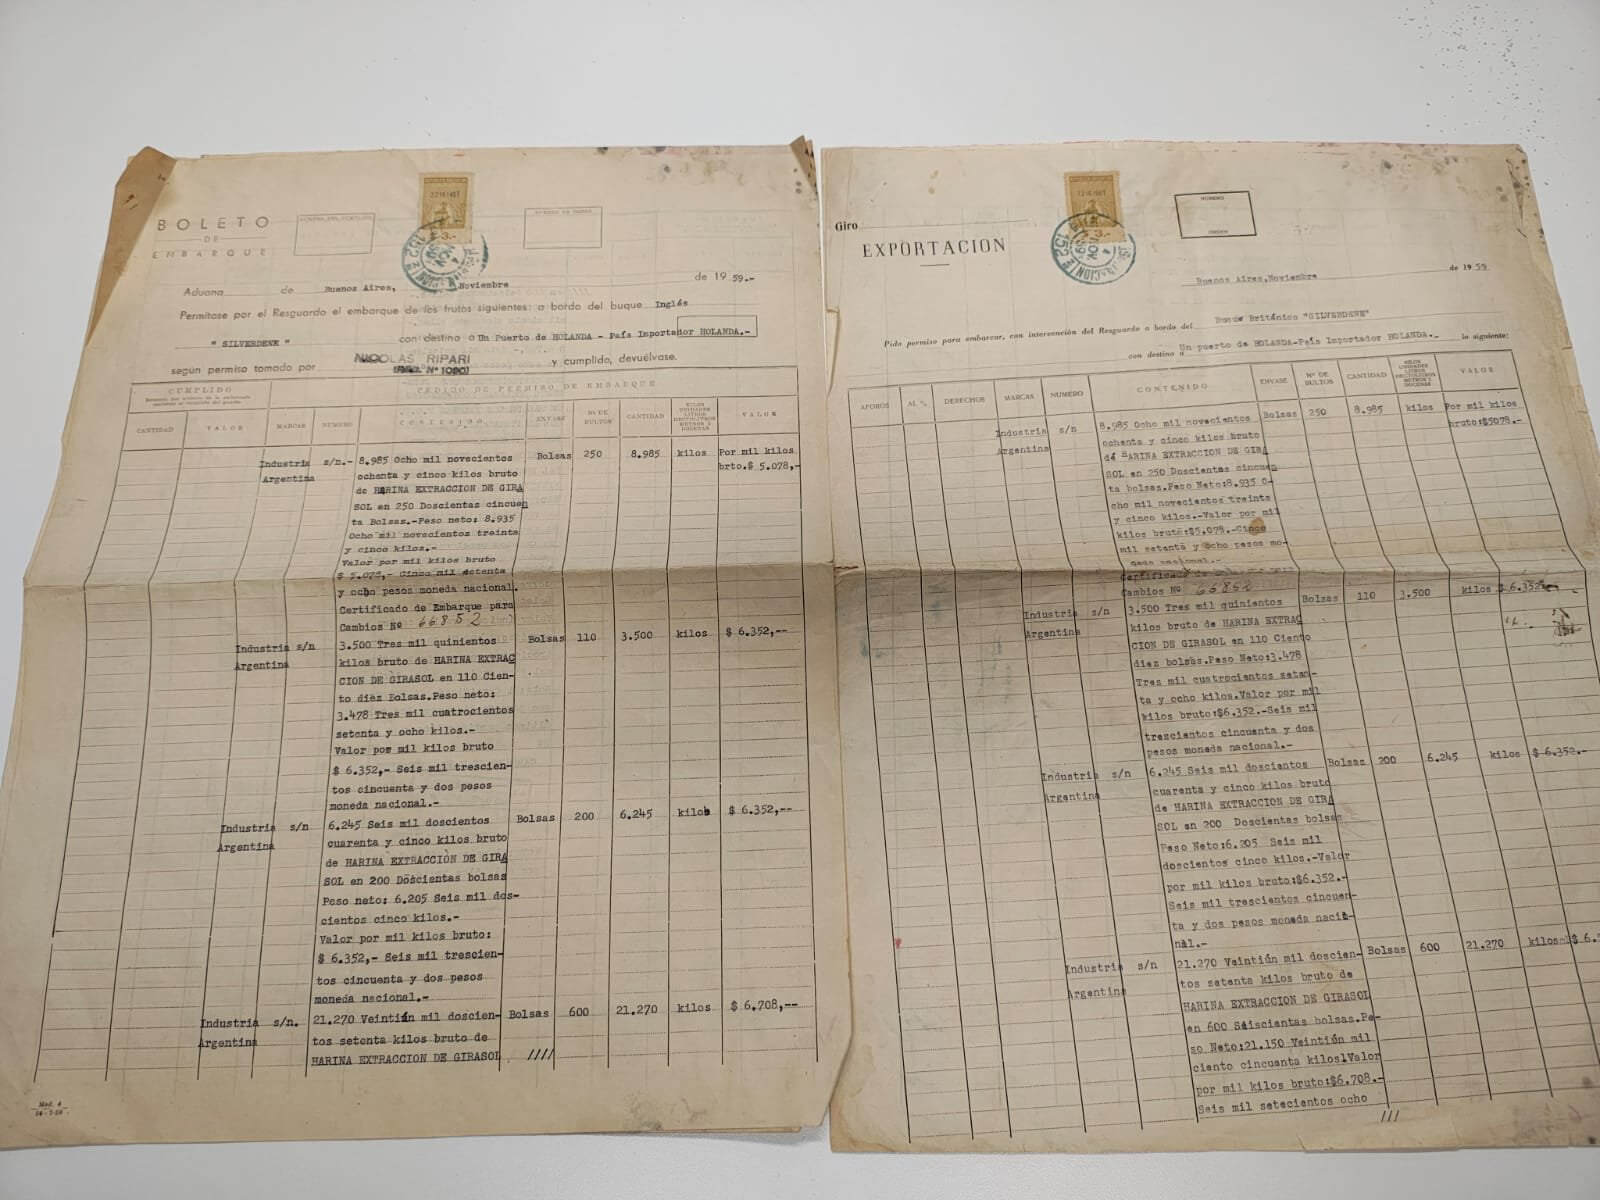 BOLETO
DE
EMBARQUE
NUMERO DE ORDEN
3.-
Aduana de Buenos Aires, Noviembre de 1959.-
Permítase por el Resguardo el embarque de los frutos siguientes: a bordo del buque Inglés
" SILVERDENE " con destino a Un Puerto de HOLANDA - País Importador HOLANDA.-
según permiso tomado por NICOLAS RIPARI y cumplido, devuélvase.
CUMPLIDO
CODIGO DE PERMISO DE EMBARQUE
CANTIDAD VALOR MARCAS NUMERO CONTENIDO ENVASE Nº DE BULTOS CANTIDAD KILOS UNIDADES LITROS HECTOLITROS METROS O DOCENAS VALOR
Industria s/n.- 8.985 Ocho mil novecientos Bolsas 250 8.985 kilos Por mil kilos
Argentina ochenta y cinco kilos bruto brto.$ 5.078,-
de HARINA EXTRACCION DE GIRA
SOL en 250 Doscientas cincuen
ta Bolsas.-Peso neto: 8.935
Ocho mil novecientos treinta
y cinco kilos.-
Valor por mil kilos bruto
$ 5.078,- Cinco mil setenta
y ocho pesos moneda nacional.
Certificado de Embarque para
Cambios Nº 66852
Industria s/n 3.500 Tres mil quinientos Bolsas 110 3.500 kilos $ 6.352,--
Argentina kilos bruto de HARINA EXTRAC
CION DE GIRASOL en 110 Cien-
to diez Bolsas.Peso neto:
3.478 Tres mil cuatrocientos
setenta y ocho kilos.-
Valor por mil kilos bruto
$ 6.352,- Seis mil trescien-
tos cincuenta y dos pesos
moneda nacional.-
Industria s/n 6.245 Seis mil doscientos Bolsas 200 6.245 kilos $ 6.352,--
Argentina cuarenta y cinco kilos bruto
de HARINA EXTRACCIÓN DE GIRA
SOL en 200 Doscientas bolsas
Peso neto: 6.205 Seis mil dos-
cientos cinco kilos.-
Valor por mil kilos bruto:
$ 6.352,- Seis mil trescien-
tos cincuenta y dos pesos
moneda nacional.-
Industria s/n. 21.270 Veintiún mil doscien- Bolsas 600 21.270 kilos $ 6.708,--
Argentina tos setenta kilos bruto de
HARINA EXTRACCION DE GIRASOL ////
Giro
EXPORTACION
NUMERO
ORDEN
3.-
Buenos Aires,Noviembre de 1959
Pido permiso para embarcar, con intervención del Resguardo a bordo del Buque Británico "SILVERDENE"
con destino a Un puerto de HOLANDA-País Importador HOLANDA.- lo siguiente:
AFOROS AL % DERECHOS MARCAS NUMERO CONTENIDO ENVASE Nº DE BULTOS CANTIDAD KILOS UNIDADES LITROS HECTOLITROS METROS O DOCENAS VALOR
Industria s/n 8.985 Ocho mil novecientos Bolsas 250 8.985 kilos Por mil kilos
Argentina ochenta y cinco kilos bruto bruto:$5078.-
de HARINA EXTRACCION DE GIRA
SOL en 250 Doscientas cincuen
ta bolsas.Peso Neto:8.935 O-
cho mil novecientos treinta
y cinco kilos.-Valor por mil
kilos bruto:$5.078.-Cinco
mil setenta y ocho pesos mo-
neda nacional.-
Certificado de
Cambios Nº 66852
Industria s/n 3.500 Tres mil quinientos Bolsas 110 3.500 kilos $ 6.352.-
Argentina kilos bruto de HARINA EXTRAC
CION DE GIRASOL en 110 Ciento
diez bolsas.Peso Neto:3.478
Tres mil cuatrocientos seten-
ta y ocho kilos.Valor por mil
kilos bruto:$6.352.-Seis mil
trescientos cincuenta y dos
pesos moneda nacional.-
Industria s/n 6.245 Seis mil doscientos Bolsas 200 6.245 kilos $ 6.352.-
Argentina cuarenta y cinco kilos bruto
de HARINA EXTRACCION DE GIRA
SOL en 200 Doscientas bolsas
Peso Neto:6.205 Seis mil
doscientos cinco kilos.-Valor
por mil kilos bruto:$6.352.-
Seis mil trescientos cincuen-
ta y dos pesos moneda nacio-
nal.-
Industria s/n 21.270 Veintiún mil doscien- Bolsas 600 21.270 kilos
Argentina tos setenta kilos bruto de
HARINA EXTRACCION DE GIRASOL
en 600 Seiscientas bolsas.Pe-
so Neto:21.150 Veintiún mil
ciento cincuenta kilos.Valor
por mil kilos bruto:$6.708.-
Seis mil setecientos ocho
///